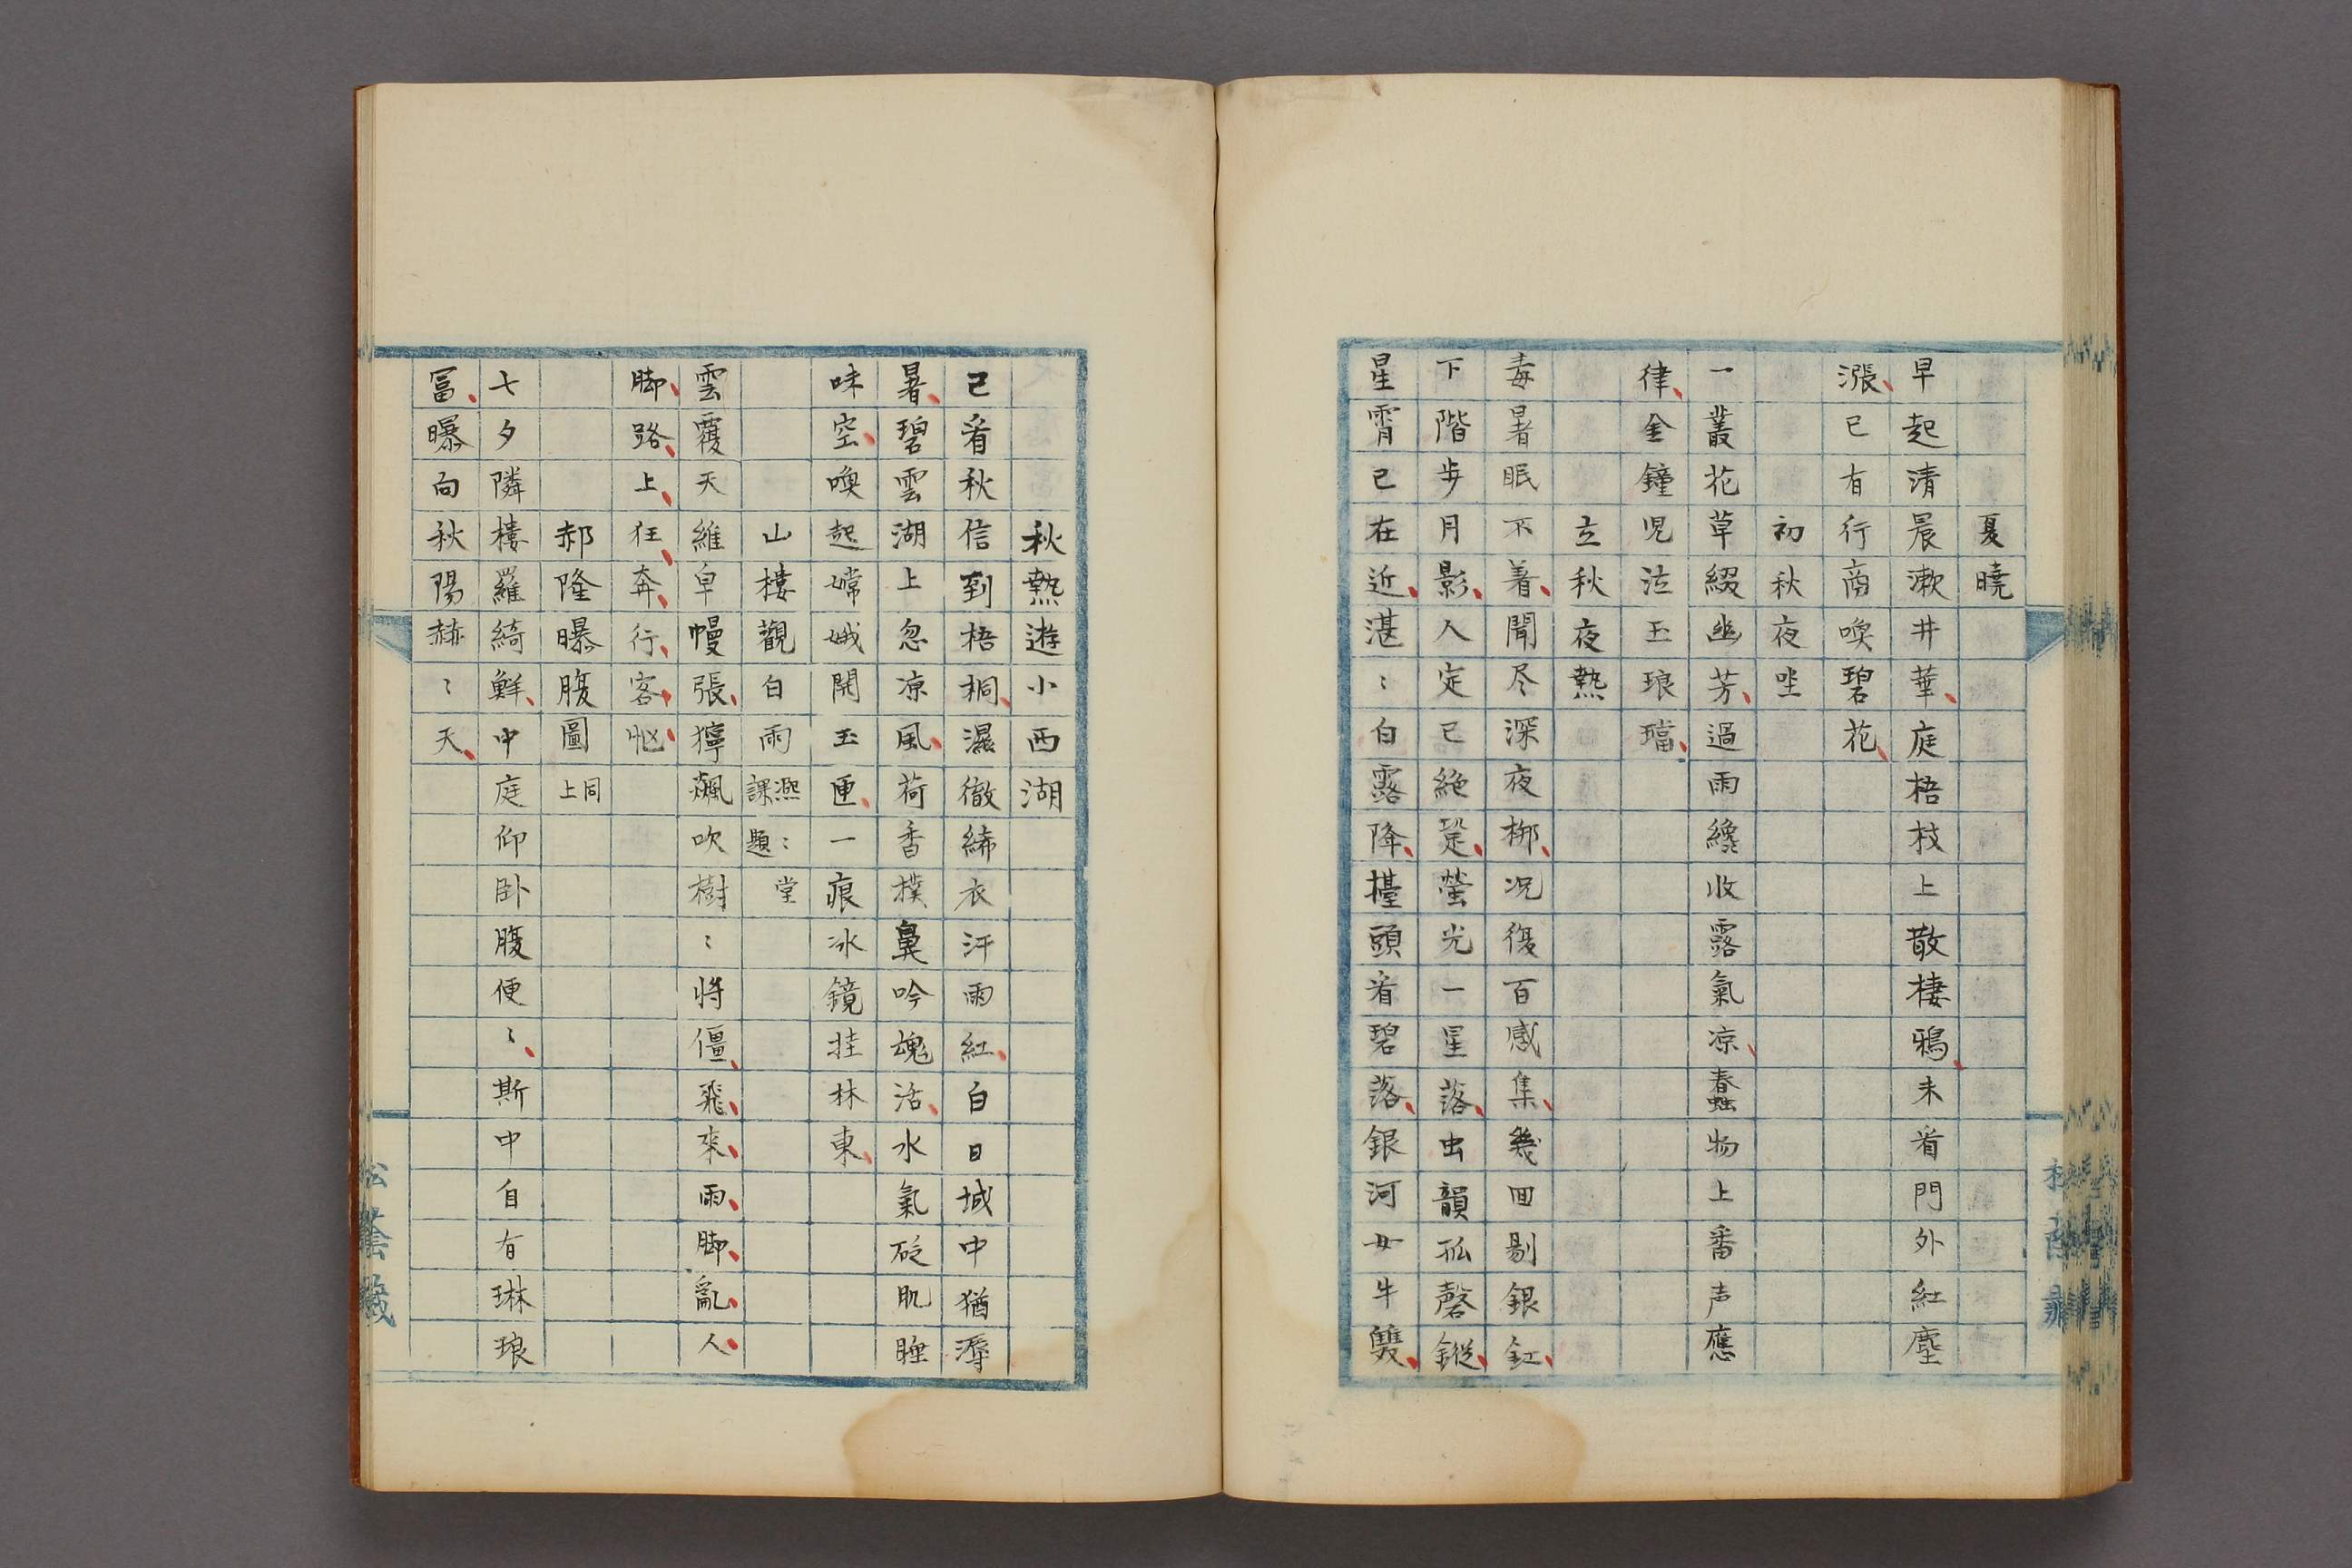 夏曉
早起清晨漱井華庭梧枝上散棲鴉未看門外紅塵
漲已有行商喚碧花
初秋夜坐
一叢花草綴幽芳過雨纔收露氣凉蠢物上番声應
律金鐘児泣玉琅璫
立秋夜熱
毒暑眠不着聞尽深夜柳况復百感集幾回剔銀釭
下階步月影人定已絶跫螢光一星落虫韻孤磬鏦
星霄已在近湛〻白露降擡頭看碧落銀河女牛雙
秋熱遊小西湖
已看秋信到梧桐濕徹絺衣汗雨紅白日城中猶溽
暑碧雲湖上忽凉風荷香撲鼻吟魂活水氣砭肌睡
味空喚起嫦娥開玉匣一痕冰鏡挂林東
山樓觀白雨 凞〻堂課題
雲覆天維皁幔張獰飆吹樹〻将僵飛來雨脚亂人
脚路上狂奔行客忙
郝隆曝腹圖 同上
七夕隣樓羅綺鮮中庭仰卧腹便〻斯中自有琳琅
冨曝向秋陽赫〻天
松蔭藏